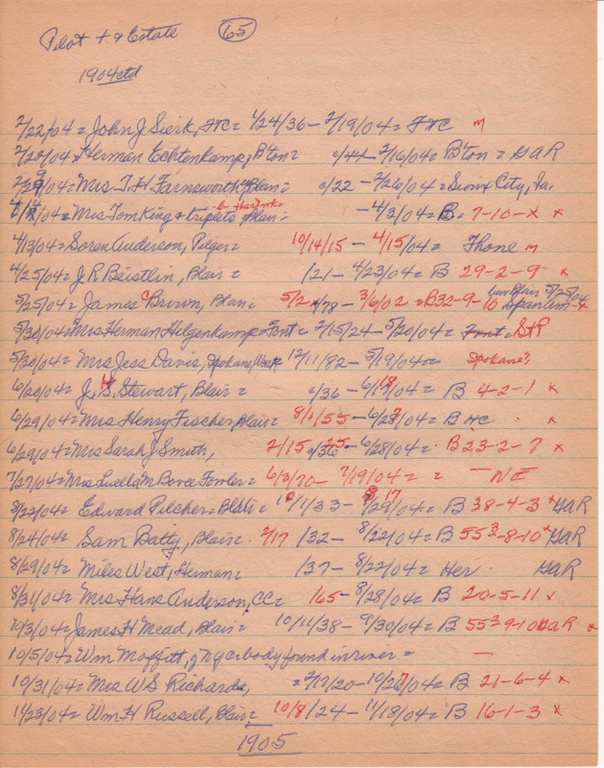 Pilot + & Estate 65
1904ctd
2/22/04= John J Sierk, FtC= 1/24/36- 2/19/04= FtC m
2/2 /04= Herman Echtenkamp, Bton= c/44- 2/16/04= Bton= GAR
2/29/04= Mrs T H Farnsworth, Blair= c/22- 2/26/04= Sioux City, Ia.
b- Hartwik
4/ /04= Mrs Tom King & triplets Blair= -4/3/04= B= 7-10-x x
4/13/04= Soren Anderson, Pilger= 10/14/15- 4/15/04= Thone m
4/25/04= J R Beistlin, Blair= /21- 4/23/04= B 29-2-9 x
5/25/04= James C Brown, Blair= 5/2 /78- 3/6/02= B32-9-10 Span Am x 5/25/04
5/30/04= Mrs Herman Helgenkamp= Font= 2/15/24- 5/20/04= Font= StP
5/30/04= Mrs Jess Davis, Spokane, Wash= 12/11/82- 5/19/04= Spokane?
6/20/04= J. H. Stewart, Blair= c/36- 6/18/04= B 4-2-1 x
6/29/04= Mrs Henry Fischer, Blair= 8/1/55- 6/28/04= B HC x
6/29/04= Mrs Sarah J Smith, 2/15 c/36 25- 6/28/04= B 23-2-7 x
7/27/04= Mrs Luella M Bovee Fowler= 6/3/70- 7/19/04= = -NE
8/22/04= Edward Pilcher= Blair= 10/1/33- 8/17 /29/04= B 38-4-3 x GAR
8/24/04= Sam Batty, Blair= 2/17 /32- 8/22/04= B 55 3-8-10 x GAR
8/29/04= Miles West, Herman= /37- 8/22/04= Her. GAR
8/31/04= Mrs Hans Anderson, CC= 165- 8/28/04= B 20-5-11 x
10/3/04= James H Mead, Blair= 10/11/38- 9/30/04= B 55 3-9-10 GAR x
10/5/04= Wm Moffitt, of NYC= body found in river= -
10/31/04= Mrs W S Richards, = 2/17/20- 10/26/04= B 21-6-4 x
11/23/04= Wm H Russell, Blair= 10/8/24- 11/18/04= B 16-1-3 x
1905